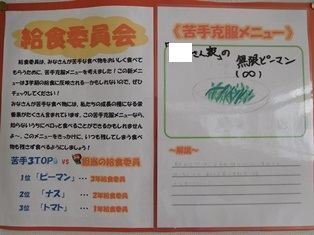 給食委員会
給食委員は、みなさんが苦手な食べ物をおいしく食べて
もらうために、苦手克服メニューを考えました!この献メ
ニューは3学期の給食に反映されるかもしれないので、ぜひ
チェックしてください!
みなさんが苦手な食べ物には、私たちの成長の糧になる栄
養素がたくさん含まれています。この苦手克服メニューなら、
知らないうちにペロっと食べることができるかもしれません
よ〜。このメニューをきっかけに、いつも残してしまう食べ
物も残さず食べるようにしましょう!
苦手3TOP vs 担当の給食委員
1位 「ピーマン」 … 3年給食委員
2位 「ナス」 … 2年給食委員
3位 「トマト」 … 1年給食委員
《苦手克服メニュー》
さん家の
無限ピーマン
(∞)
〜解説〜